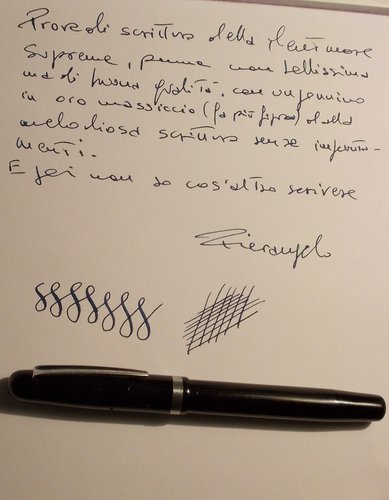 Prove di scrittura della
Supreme, penna non bellissima
ma di buona qualità, con un pennino
in oro massiccio (fa più figo) dalla
melodiosa scrittura senza impunta-
menti.
E poi non so cos'altro scrivere
Pierangelo